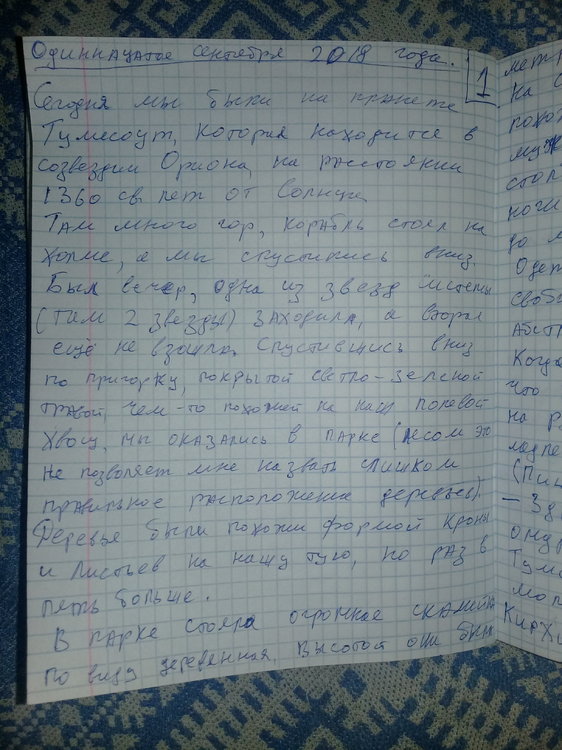 Одиннадцатое сентября 2018 года.
1
Сегодня мы были на планете
Тумесоут, которая находится в
созвездии Ориона, на расстоянии
1360 св. лет от Солнца.
Там много гор, корабль стоял на
холме, а мы спустились вниз.
Был вечер, одна из звезд системы
(там 2 звезды) заходила, а вторая
ещё не взошла. Спустившись вниз
по пригорку, покрытой светло-зеленой
травой, чем-то похожей на наш полевой
хвощ, мы оказались в парке (лесом это
не позволяет мне назвать слишком
правильное расположение деревьев).
Деревья были похожи формой кроны
и листьев на нашу тую, но раз в
пять больше.
В парке стояла огромная скамейка
по виду деревянная. Высотой она была
лет
На
похо
муж
стол
ноги
до
Одет
своб
Абст
Когда
что
на р
(Пиш
- Зд
Тум
мол